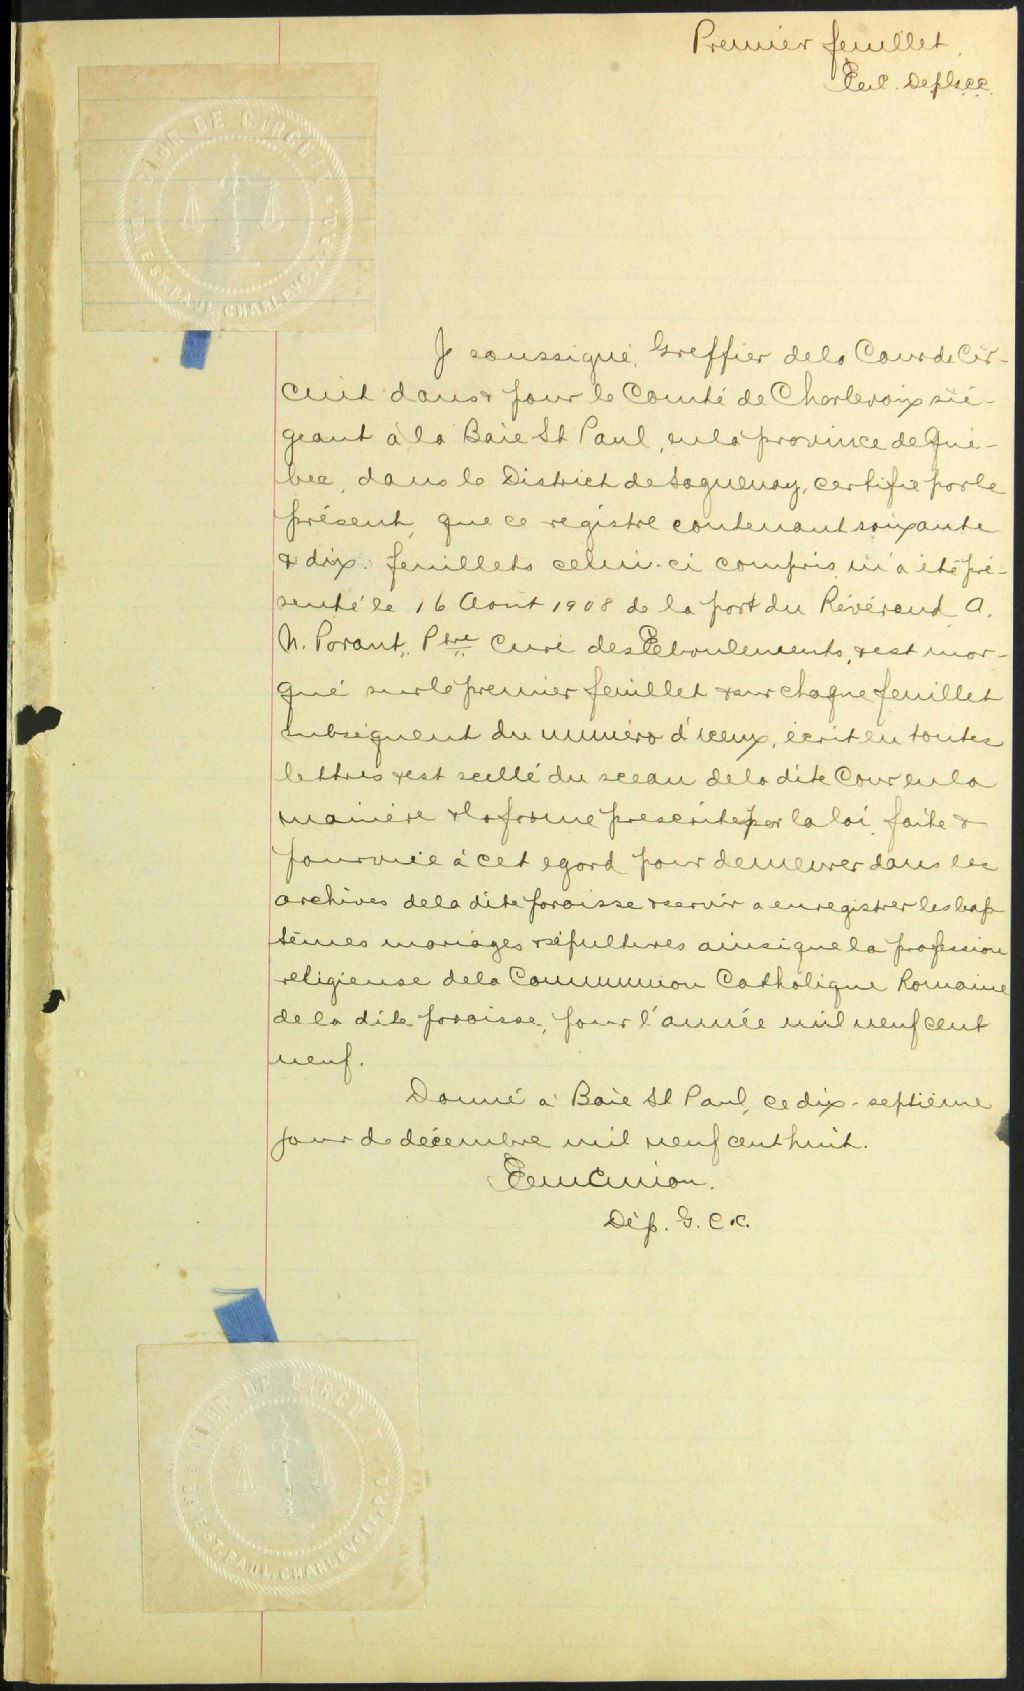 Premier feuillet.
COUR DE CIRCUIT
BAIE ST. PAUL, CHARLEVOIX, P.Q.
Je soussigné, Greffier de la Cour de Cir-
cuit dans & pour le Comté de Charlevoix sié-
geant à la Baie St Paul, en la province de Qué-
bec, dans le District de Saguenay, certifie par le
présent, que ce régistre contenant soixante
& dix feuillets celui-ci compris m'a été pré-
senté le 16 Aout 1908 de la part du Révérend A.
N. Parant, Ptre Curé des Eboulements, & est mar-
qué sur le premier feuillet & sur chaque feuillet
subséquent du numéro d'iceux, écrit en toutes
lettres & est scellé du sceau de la dite Cour en la
manière & la forme prescrites par la loi faite &
pourvue à cet egard pour demeurer dans les
archives de la dite paroisse & servir a enregistrer les bap
têmes mariages & sépultures ainsi que la profession
religieuse de la Communion Catholique Romaine
de la dite paroisse, pour l'année mil neuf cent
neuf.
Donné à Baie St Paul, ce dix-septième
jour de décembre mil neuf cent huit.
Dép. G. C. C.
COUR DE CIRCUIT
BAIE ST. PAUL, CHARLEVOIX, P.Q.